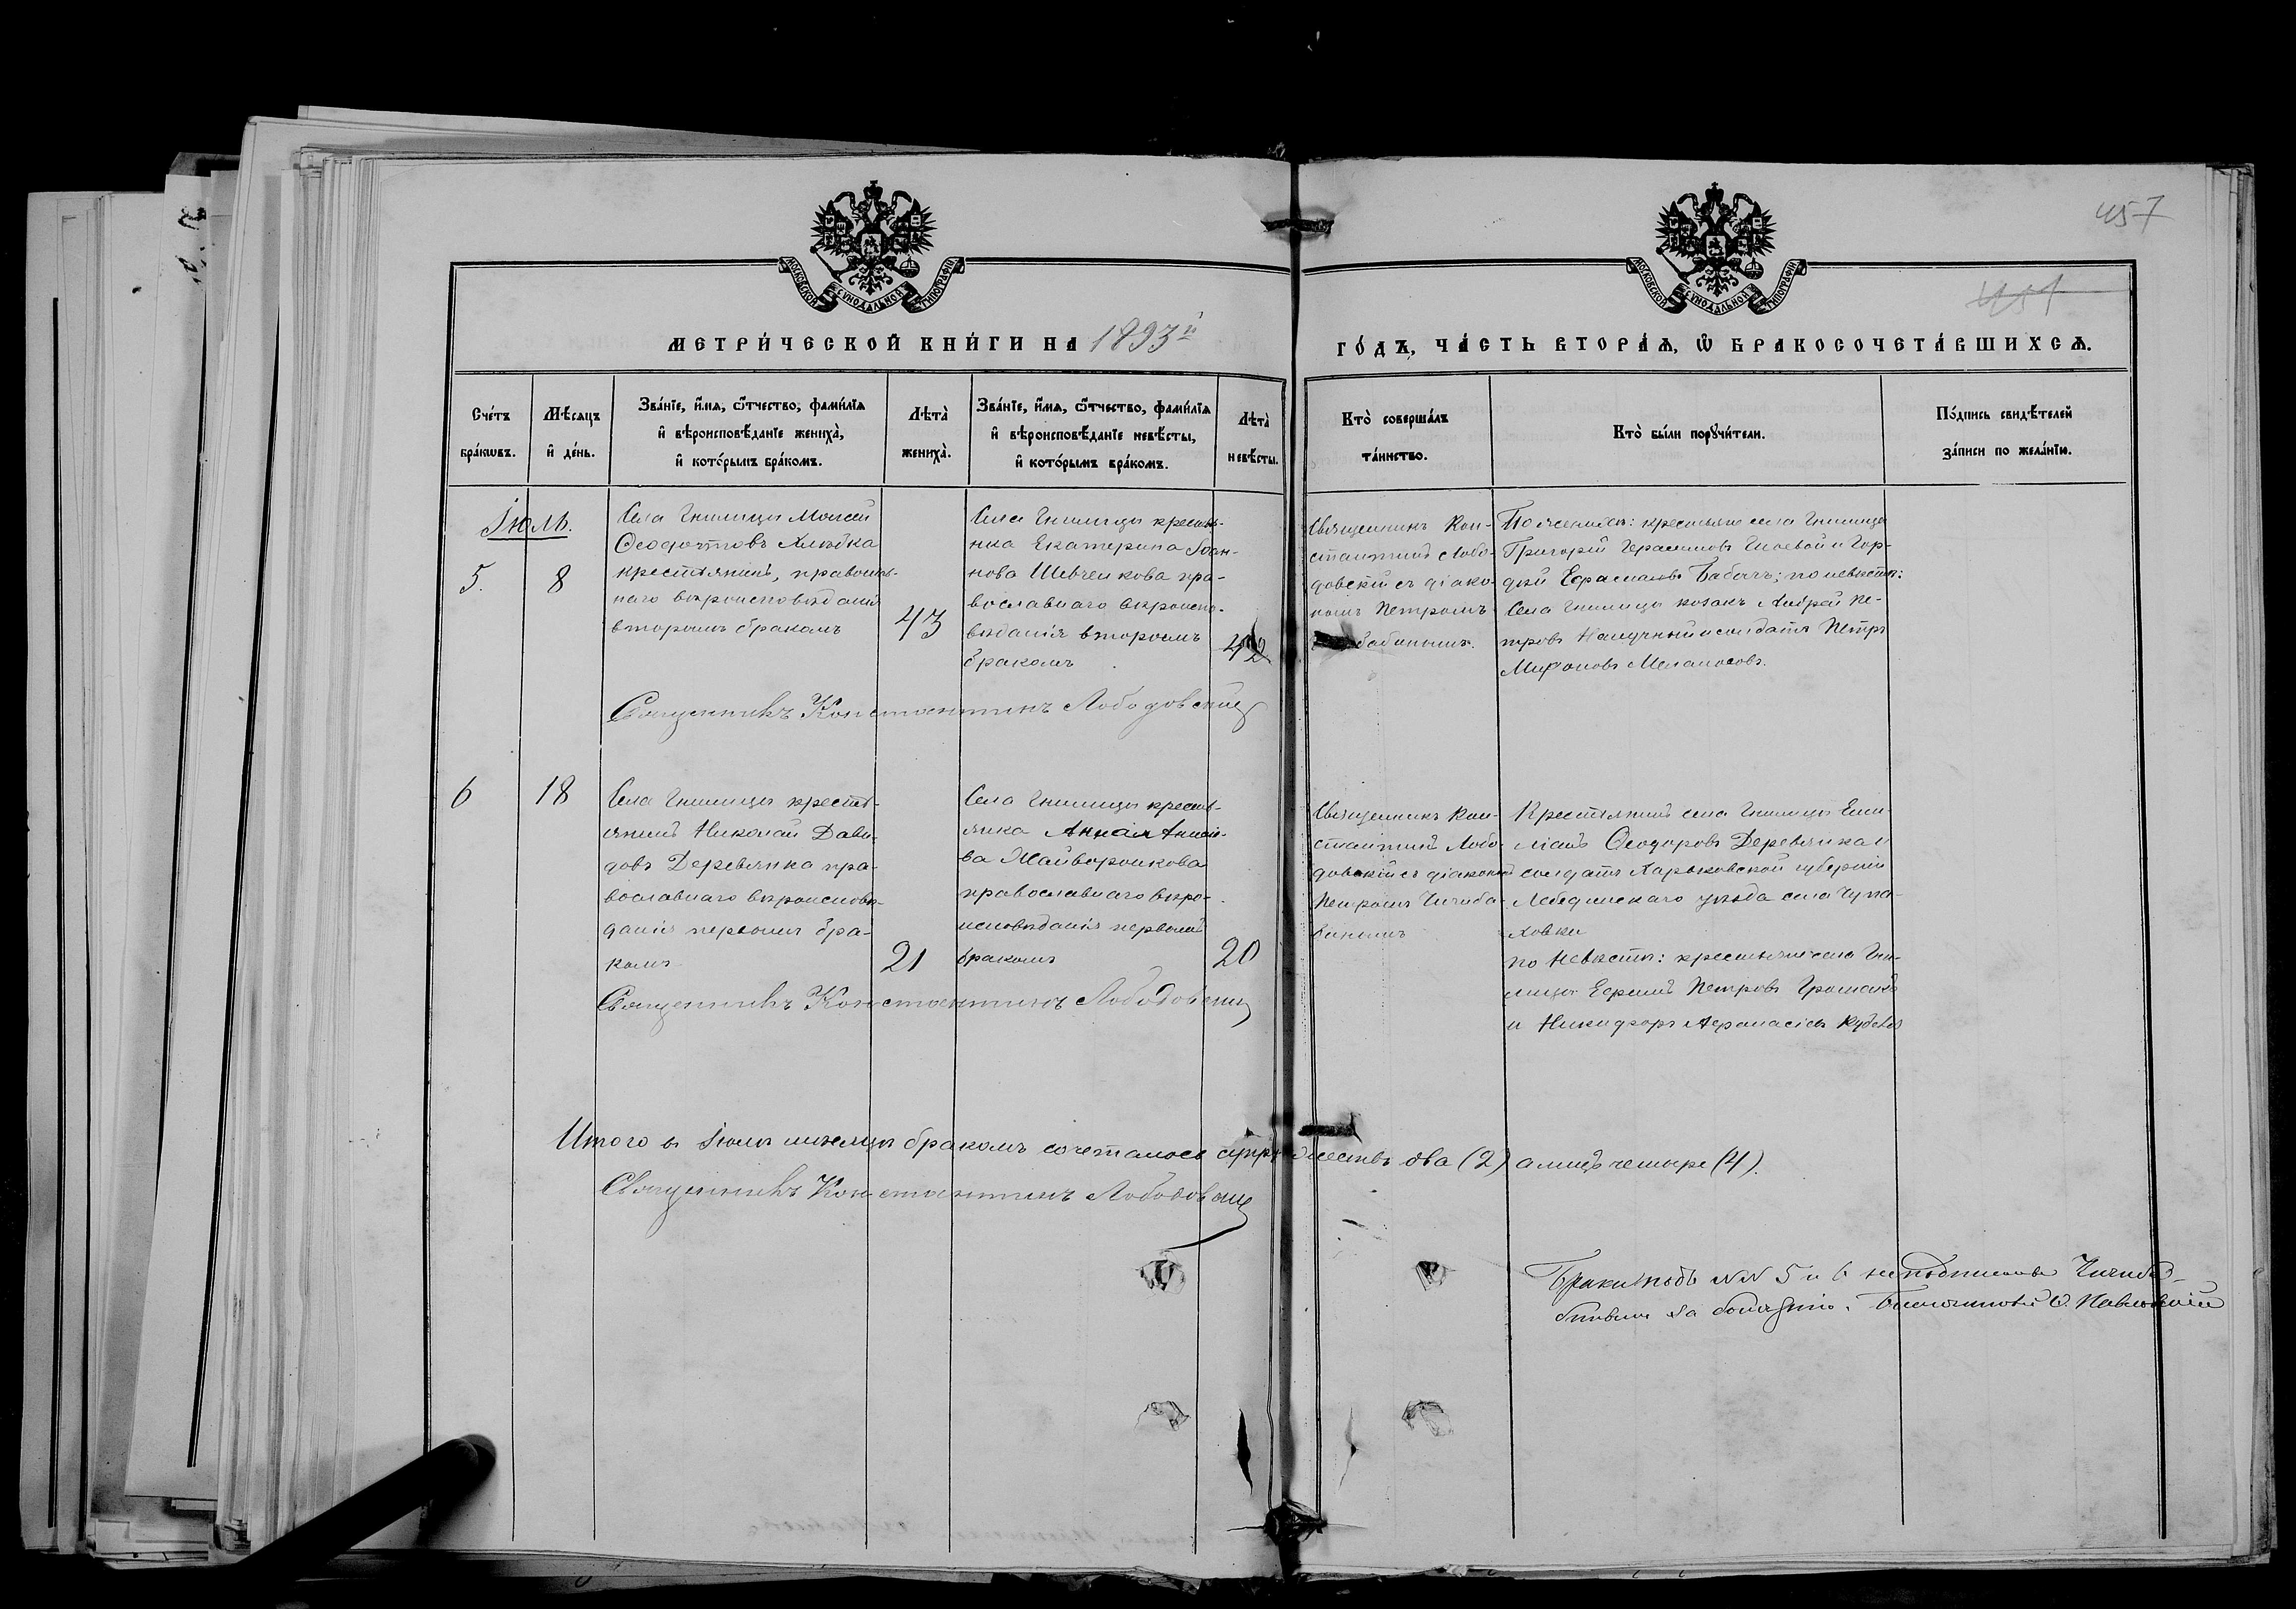 457
МОСКОВСКОЙ СѴНОДАЛЬНОЙ ТИПОГРАФІИ
МОСКОВСКОЙ СѴНОДАЛЬНОЙ ТИПОГРАФІИ
МЕТРИ́ЧЕСКОЙ КНИ́ГИ НА 1893й
ГО́ДЪ, ЧА́СТЬ ВТОРА́Ѧ, Ѡ҆ БРАКОСОЧЕТА́ВШИХСѦ.
Сче́тъ
бра́кѡвъ.
Мѣ́сѧцъ
и҆ де́нь.
Зва́нїе, и҆́мѧ, ѻ҆́тчество, фами́лїѧ
и҆ вѣроисповѣ́данїе жениха̀,
и҆ кото́рымъ бра́комъ.
Лѣта̀
жениха̀.
Зва́нїе, и҆́мѧ, ѻ҆́тчество, фами́лїѧ
и҆ вѣроисповѣ́данїе невѣ́сты,
и҆ кото́рымъ бра́комъ.
Лѣта̀
невѣ́сты.
Кто̀ соверша́лъ
та́инство.
Кто̀ бы́ли порꙋчи́тели.
По́дпись свидѣ́телей
за́писи по жела́нїю.
Іюль.
5.
8
Села Гнилицы Моисей
Ѳеодотовъ Хлѣбка
крестьянинъ, православ-
наго вѣроисповѣданія
вторымъ бракомъ
43
Села Гнилицы крестья-
нка Екатерина Іоан-
нова Шевченкова пра-
вославнаго вѣроиспо-
вѣданія вторымъ
бракомъ
42
Священникъ Кон-
стантинъ Лобо-
довскій съ діако-
номъ Петромъ
По женихѣ: крестьяне села Гнилицы
Григорій Герасимовъ и Гор-
дій Бабичъ; по невѣстѣ:
Села Гнилицы козакъ Андрей Пе-
тровъ и солдатъ Петръ
Священникъ Константинъ Лободовскій
6
18
Села Гнилицы кресть-
янинъ Николай Дави-
довъ Деревянка пра-
вославнаго вѣроисповѣ-
данія первымъ бра-
комъ
21
Села Гнилицы кресть-
янка Анна
ва Жайворонкова
православнаго вѣро-
исповѣданія первымъ
бракомъ
20
Священникъ Кон-
стантинъ Лобо-
довскій съ діакономъ
Петромъ Чичиба-
бинымъ
Крестьянинъ села Гнилицы Еми-
ліанъ Ѳеодоровъ Деревянка и
солдатъ Харьковской губерніи
Лебединскаго уѣзда села Чупа-
ховки
по невѣстѣ: крестьяне села Гни-
лицы Петровъ
и Никифоръ
Священникъ Константинъ Лободовскій
Итого въ Іюлѣ мѣсяцѣ бракомъ сочеталось супружествъ два (2) а лицъ четыре (4).
Священникъ Константинъ Лободовскій
Браки подъ №№ 5 и 6 не подписаны Чичиба-
бинымъ за болѣзнію. Благочинный Павловскій